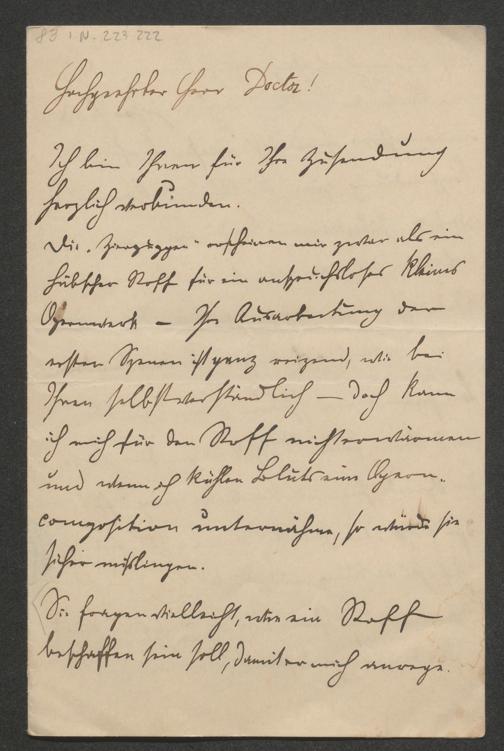 83 I.N. 223 222
Hochgeehrter Herr Doctor!
Ich bin Ihnen für Ihre Zusendung
herzlich verbunden.
Die „Zierpuppen" erscheinen mir zwar als ein
hübscher Stoff für ein anspruchsloses kleines
Opernwerk – Ihre Ausarbeitung der
ersten Szenen ist ganz reizend, wie bei
Ihnen selbstverständlich – doch kann
ich mich für den Stoff nicht erwärmen
und wenn ich kühlen Bluts eine Opern-
composition unternähme, so würde sie
sicher mißlingen.
Sie fragen vielleicht, wie ein Stoff
beschaffen sein soll, damit er mich anrege.